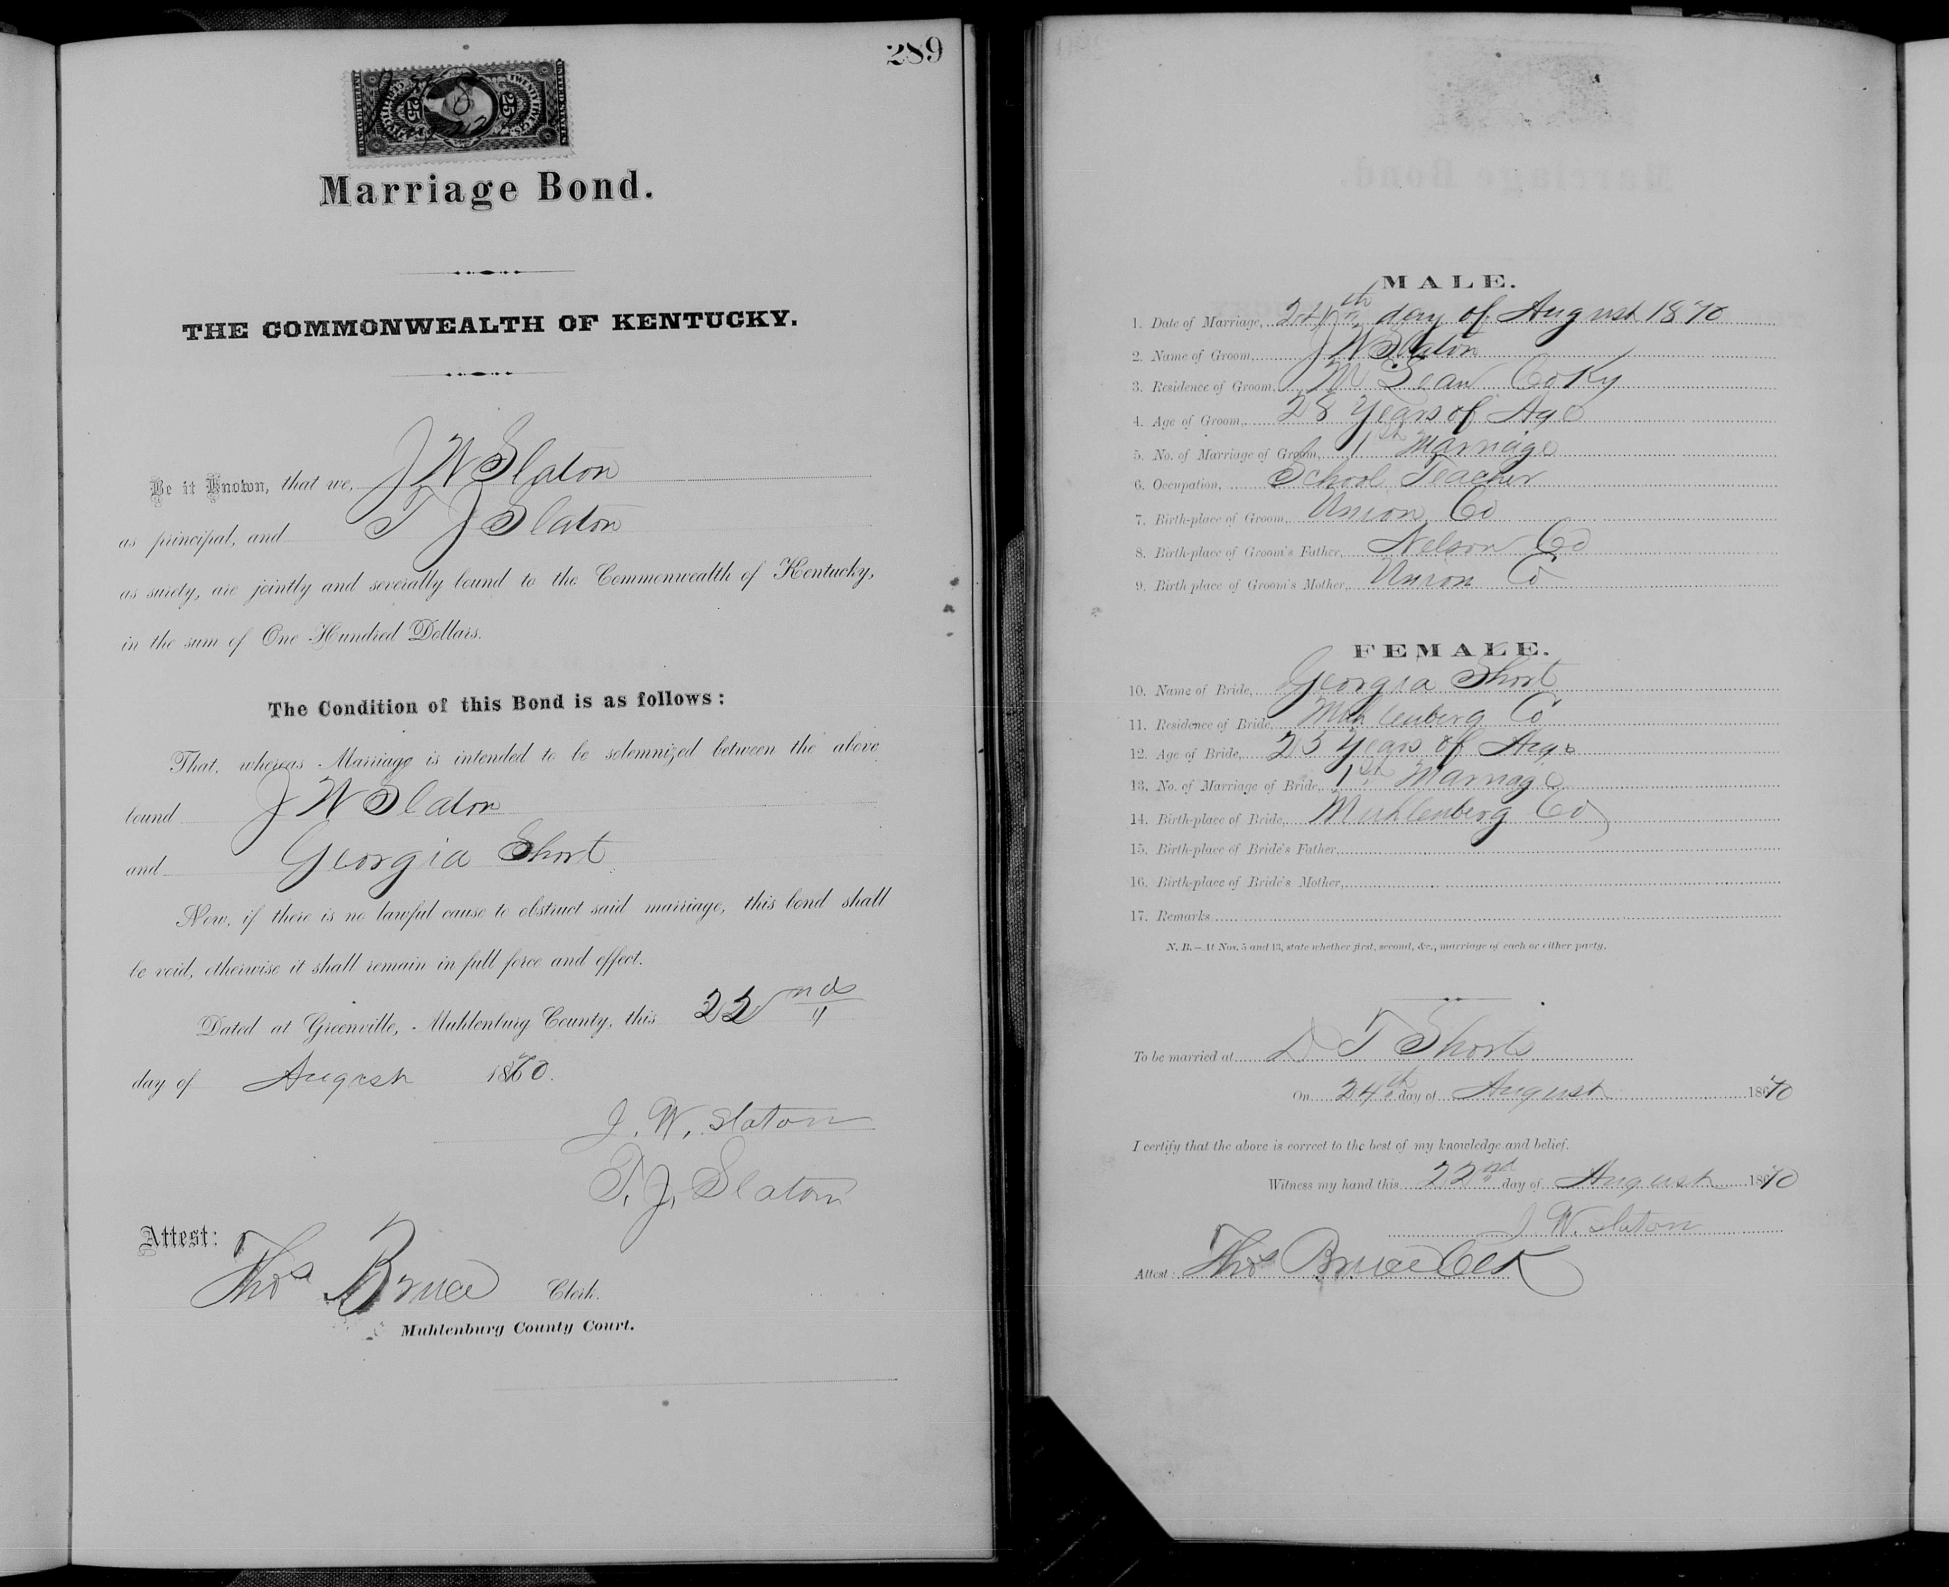 289
UNITED STATES
TWENTY FIVE CTS.
25
25
Marriage Bond.
THE COMMONWEALTH OF KENTUCKY.
Be it Known, that we, J W Slaton
as principal, and T J Slaton
as surety, are jointly and severally bound to the Commonwealth of Kentucky,
in the sum of One Hundred Dollars.
The Condition of this Bond is as follows:
That, whereas Marriage is intended to be solemnized between the above
bound J W Slaton
and Georgia Short
Now, if there is no lawful cause to obstruct said marriage, this bond shall
be void, otherwise it shall remain in full force and effect.
Dated at Greenville, Muhlenburg County, this 22nd
day of August 1870.
J. W. Slaton
T. J. Slaton
Attest:
Thos Bruce Clerk.
Muhlenburg County Court.
MALE.
1. Date of Marriage, 24th day of August 1870
2. Name of Groom, J W Slaton
3. Residence of Groom, McLean Co Ky
4. Age of Groom, 28 Years of Age
5. No. of Marriage of Groom, 1st Marriage
6. Occupation, School Teacher
7. Birth-place of Groom, Union Co
8. Birth-place of Groom's Father, Nelson Co
9. Birth-place of Groom's Mother, Union Co
FEMALE.
10. Name of Bride, Georgia Short
11. Residence of Bride, Muhlenberg Co
12. Age of Bride, 23 Years of Age
13. No. of Marriage of Bride, 1st Marriage
14. Birth-place of Bride, Muhlenberg Co
15. Birth-place of Bride's Father,
16. Birth-place of Bride's Mother,
17. Remarks
N. B.—At Nos. 5 and 13, state whether first, second, &c., marriage of each or either party.
To be married at D T Shorts
On 24th day of August 1870
I certify that the above is correct to the best of my knowledge and belief.
Witness my hand this 22nd day of August 1870
J. W. Slaton
Attest: Thos Bruce Clk